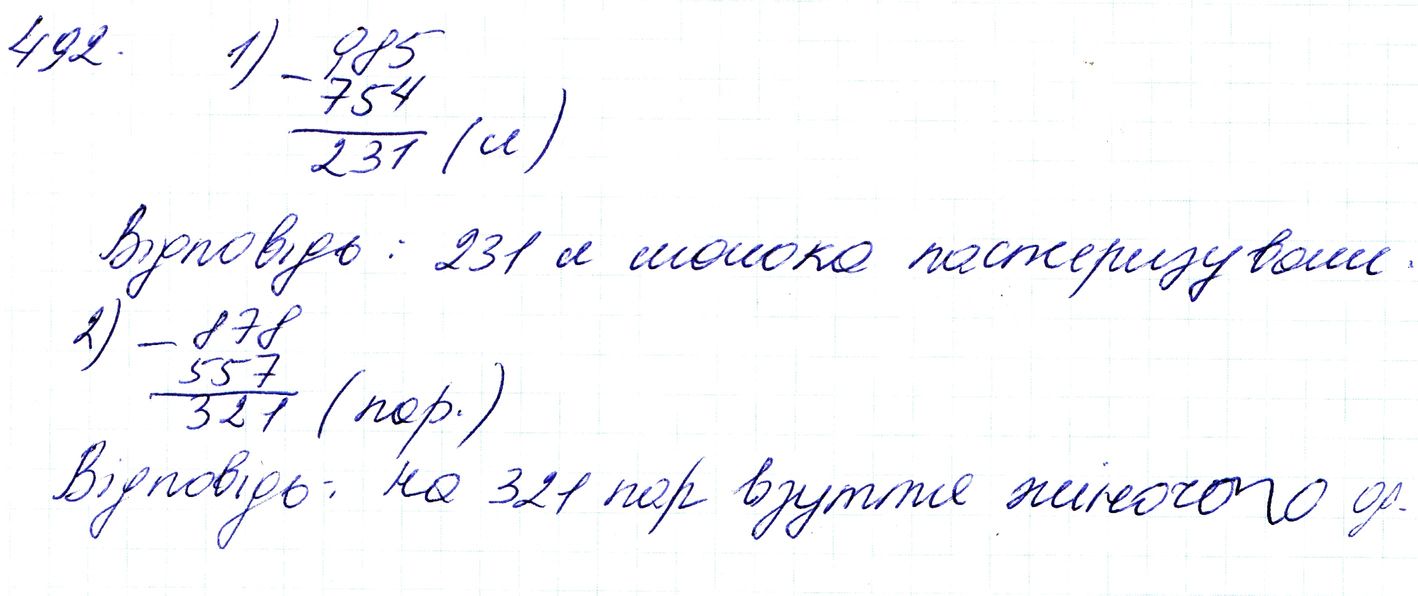 492. 1) - 985
754
231 (л)
Відповідь: 231 л молока пастеризували.
2) - 878
557
321 (пар.)
Відповідь: на 321 пар взуття жіночого